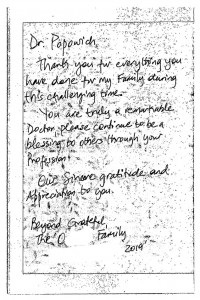 Dr. Popowich,
Thank you for everything you
have done for my Family during
this challenging time.
You are truly a remarkable
Doctor, please continue to be a
blessing to others through your
Profession!
Our Sincere gratitude and
Appreciation to you.
Beyond Grateful,
The O Family
2019